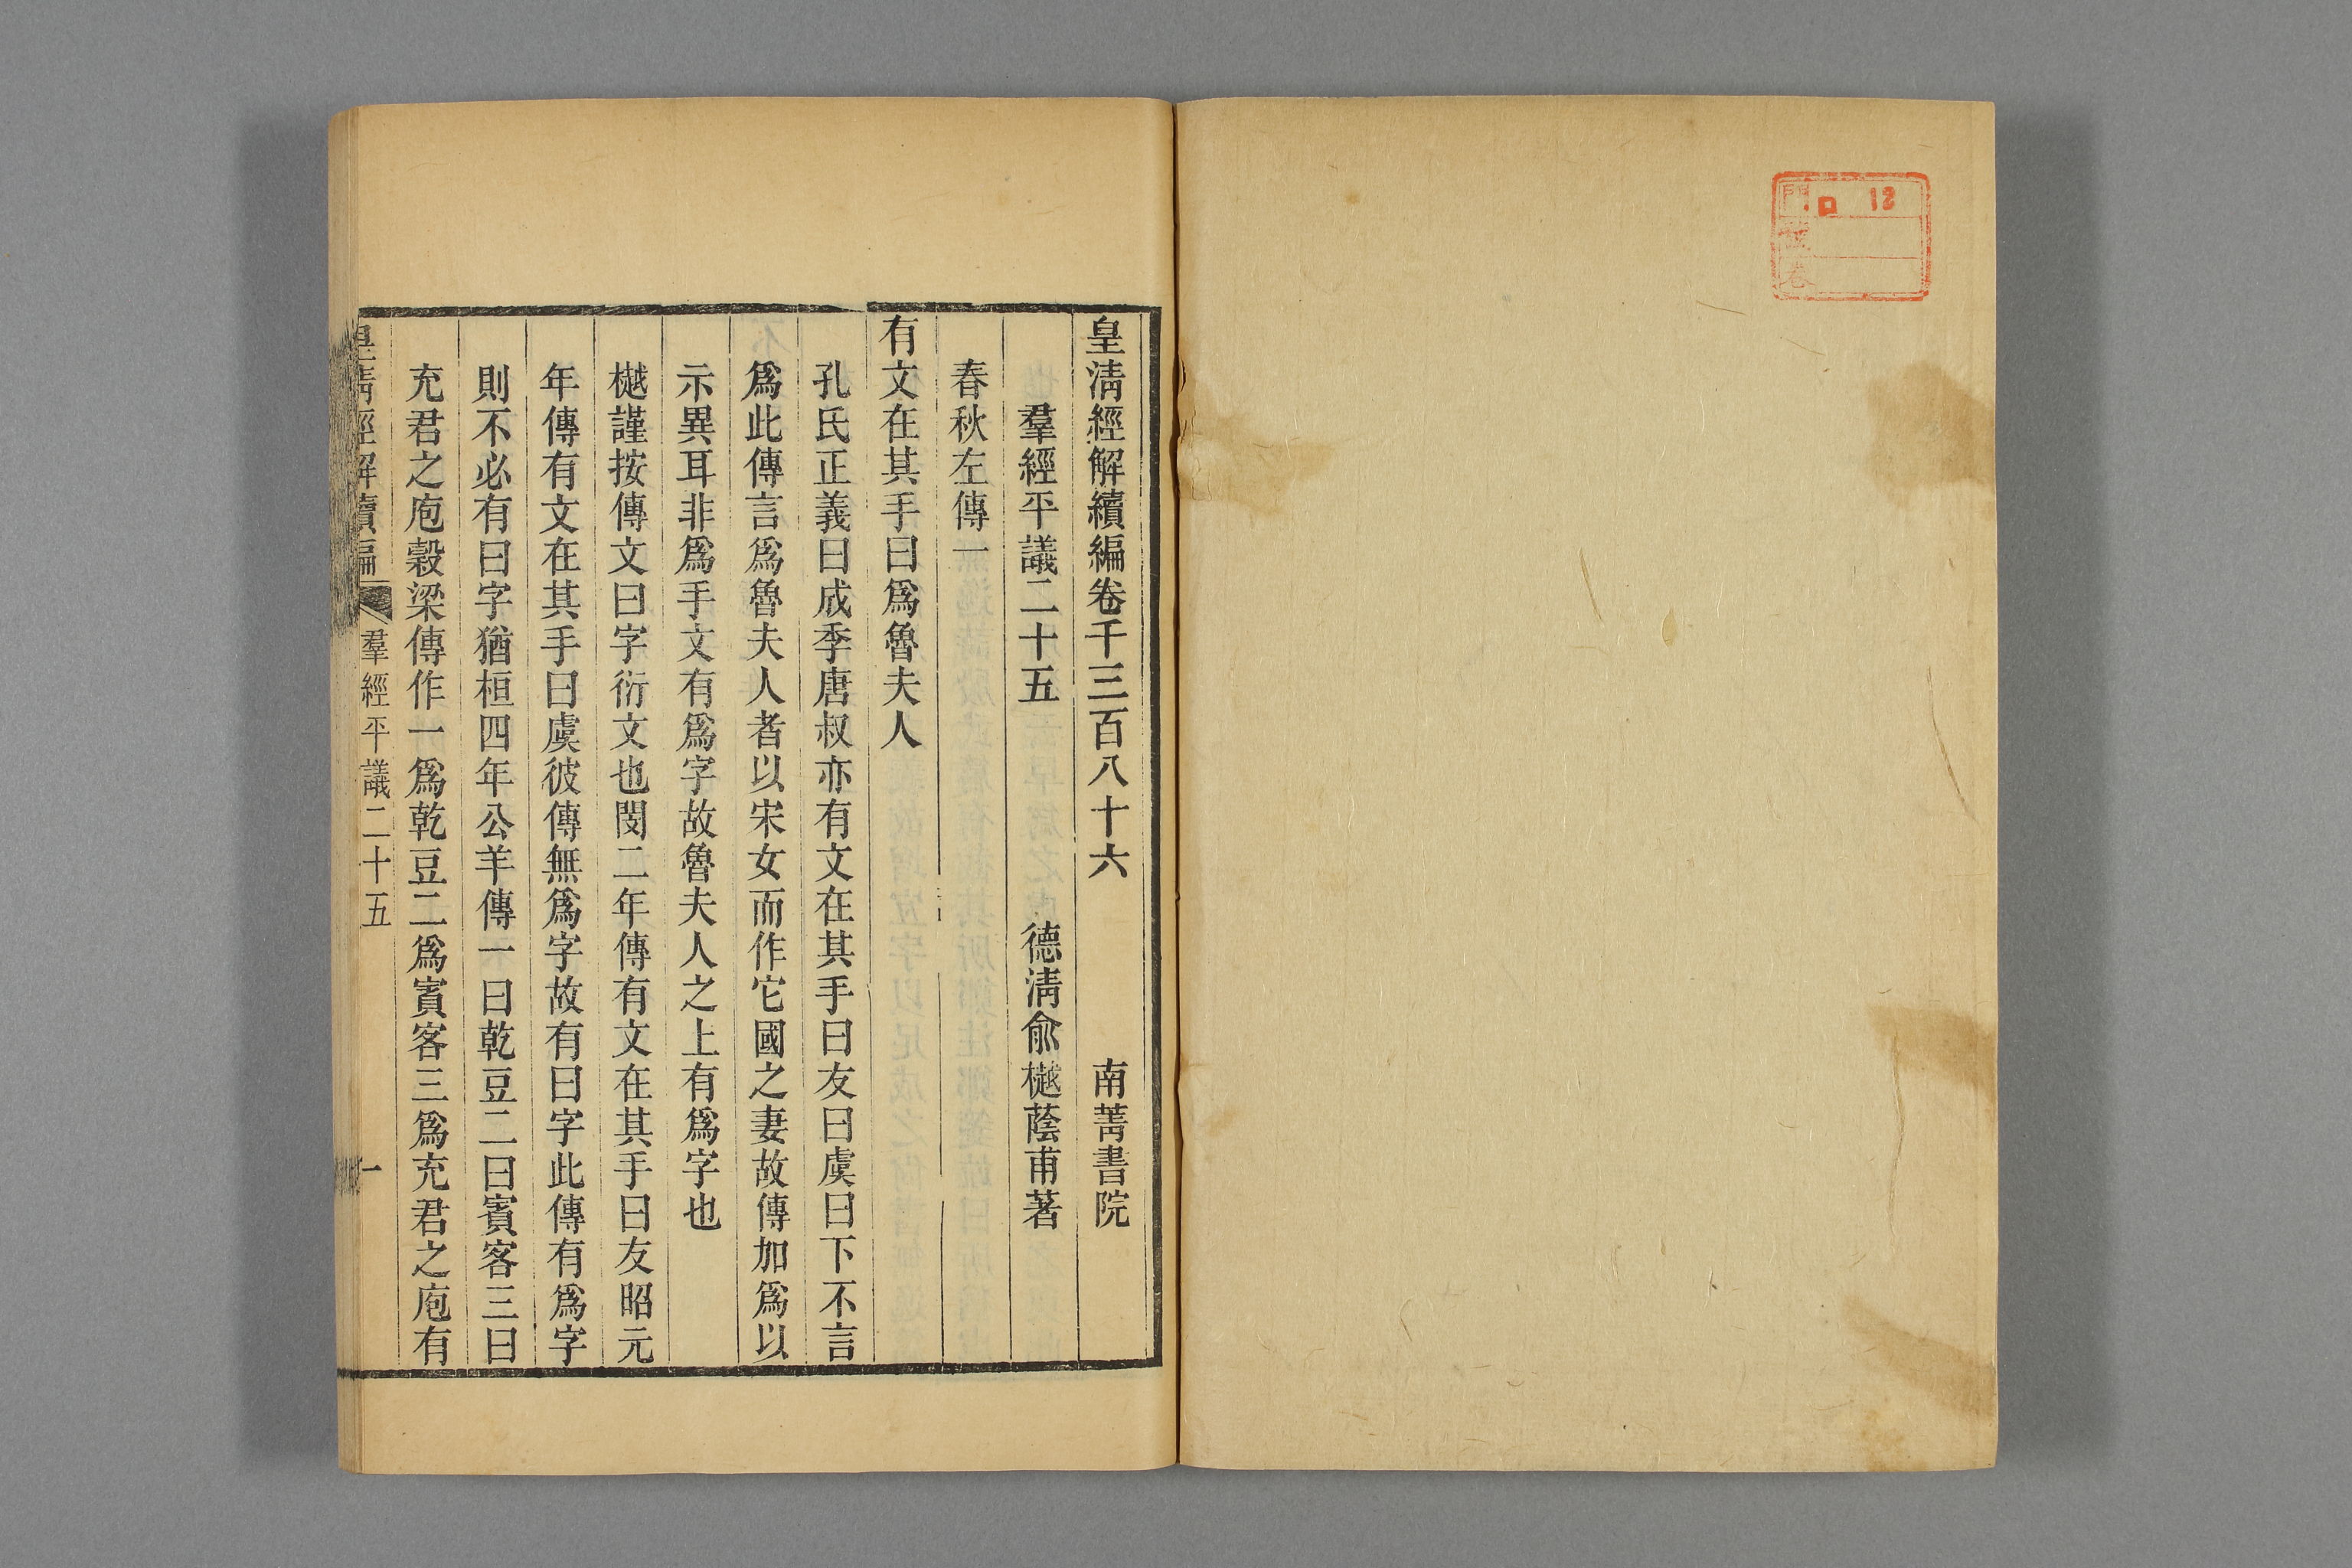 門 口 12
號
卷
皇清經解續編卷千三百八十六 南菁書院
羣經平議二十五 德清俞樾蔭甫著
春秋左傳一
有文在其手曰爲魯夫人
孔氏正義曰成季唐叔亦有文在其手曰友曰虞曰下不言
爲此傳言爲魯夫人者以宋女而作它國之妻故傳加爲以
示異耳非爲手文有爲字故魯夫人之上有爲字也
樾謹按傳文曰字衍文也閔二年傳有文在其手曰友昭元
年傳有文在其手曰虞彼傳無爲字故有曰字此傳有爲字
則不必有曰字猶桓四年公羊傳一曰乾豆二曰賓客三曰
充君之庖榖梁傳作一爲乾豆二爲賓客三爲充君之庖有
皇清經解續編 羣經平議二十五 一